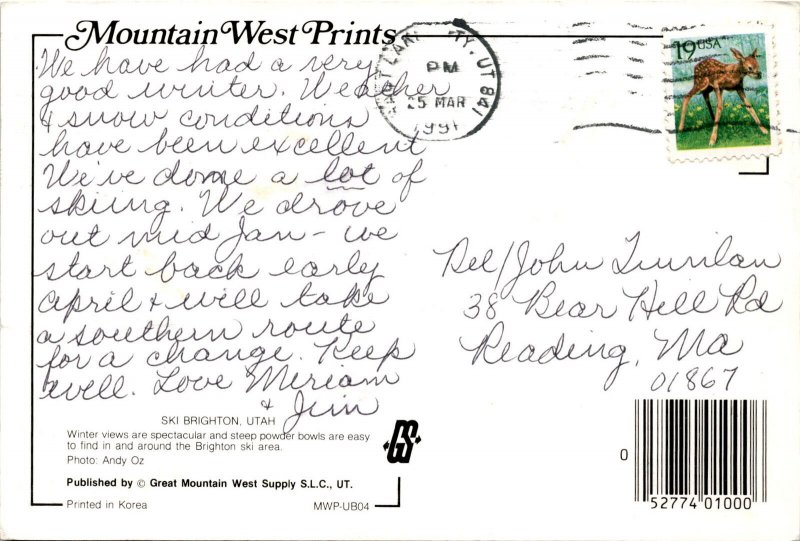 Mountain West Prints
We have had a very
good winter. Weather
& snow conditions
have been excellent
We've done a lot of
skiing. We drove
out mid Jan - we
start back early
April & will take
a southern route
for a change. Keep
well. Love Miriam
& Jim
SKI BRIGHTON, UTAH
Winter views are spectacular and steep powder bowls are easy
to find in and around the Brighton ski area.
Photo: Andy Oz
Published by © Great Mountain West Supply S.L.C., UT.
Printed in Korea
MWP-UB04
GS
SALT LAKE CITY, UT 841
PM
25 MAR
1991
19 USA
Del/John
38 Bear Hill Rd
Reading, Ma
01867
0
52774 01000